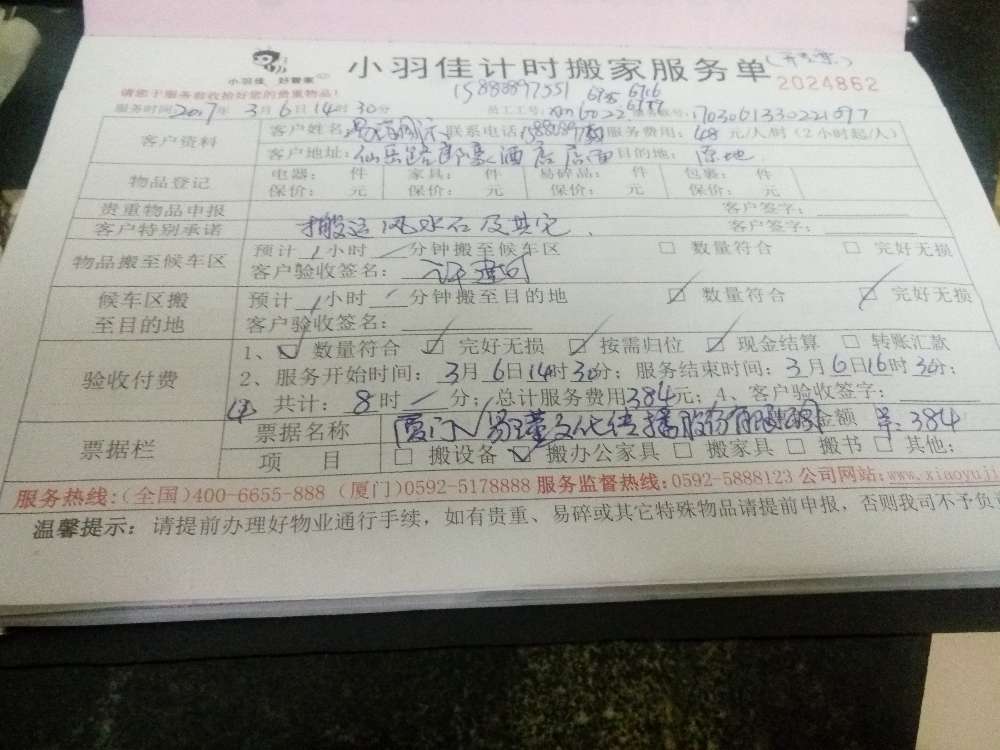 小羽佳 好管家
小羽佳计时搬家服务单
(开发票)
请您于服务前收拾好您的贵重物品!
15888897551
2024862
6785 6716
服务时间2017年 3月6日14时30分
员工工号: xm6022 6757 服务单号: 1703061330221097
客户资料
客户姓名: 联系电话: 服务费用: 48 元/人/时 (2小时起/人)
客户地址: 仙岳路郎豪酒店店面 目的地: 原地
物品登记
电器: 件 家具: 件 易碎品: 件 包裹: 件
保价: 元 保价: 元 保价: 元 保价: 元
贵重物品申报 客户签字:
客户特别承诺 搬运风水石及其它. 客户签字:
物品搬至候车区
预计 1 小时 分钟搬至候车区 □ 数量符合 □ 完好无损
客户验收签名: 许建
候车区搬至目的地
预计 1 小时 分钟搬至目的地 ☑ 数量符合 ☑ 完好无损
客户验收签名:
验收付费
1、☑ 数量符合 ☑ 完好无损 ☑ 按需归位 ☑ 现金结算 □ 转账汇款
2、服务开始时间: 3月6日14时30分; 服务结束时间: 3月6日16时30分;
共计: 8 时 分; 总计服务费用384元; 4、客户验收签字:
票据栏
票据名称 厦门 文化传播股份有限公司 金额 ¥:384
项 目 □ 搬设备 ☑ 搬办公家具 □ 搬家具 □ 搬书 □ 其他:
服务热线:(全国)400-6655-888 (厦门)0592-5178888 服务监督热线:0592-5888123 公司网站:www.xiaoyuji
温馨提示: 请提前办理好物业通行手续, 如有贵重、易碎或其它特殊物品请提前申报, 否则我司不予负